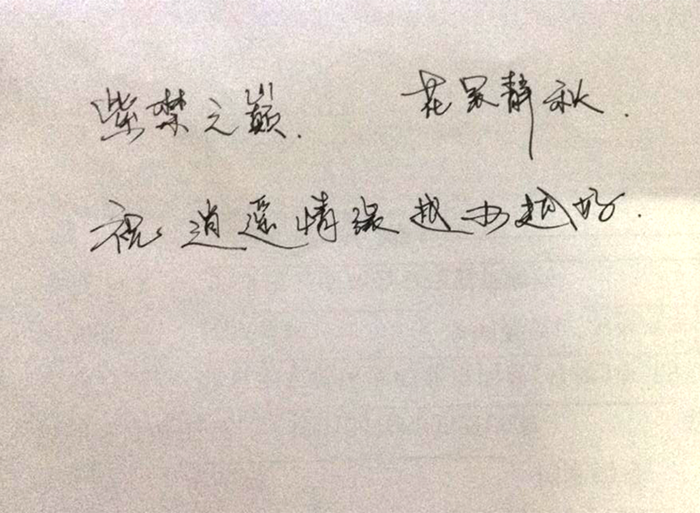 紫禁之巅. 花冢静秋.
祝逍遥情缘越办越好.